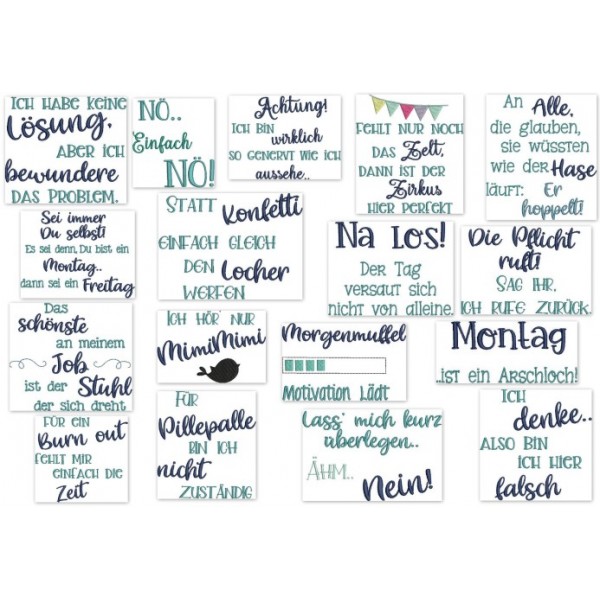 ICH HABE KEINE
Lösung,
ABER ICH
bewundere
DAS PROBLEM.
NÖ..
Einfach
NÖ!
Achtung!
ICH BIN
wirklich
SO GENERVT WIE ICH
aussehe..
FEHLT NUR NOCH
DAS Zelt,
DANN IST DER
Zirkus
HIER PERFEKT
An Alle,
die glauben,
sie wüssten
wie der Hase
läuft: Er
hoppelt!
Sei immer
Du selbst!
Es sei denn, Du bist ein
Montag..
dann sei ein Freitag
STATT
Konfetti
EINFACH GLEICH
DEN Locher
WERFEN
Na Los!
Der Tag
versaut sich
nicht von alleine.
Die Pflicht
ruft!
SAG IHR,
ICH RUFE ZURÜCK.
Das
schönste
an meinem
Job
ist der Stuhl
der sich dreht
ICH HÖR' NUR
MimiMimi
Morgenmuffel
Motivation Lädt
Montag
..ist ein Arschloch!
FÜR EIN
Burn out
FEHLT MIR
EINFACH DIE
Zeit
FÜR
Pillepalle
BIN ICH
nicht
ZUSTÄNDIG
Lass' mich kurz
überlegen..
ÄHM..
Nein!
ICH
denke..
ALSO BIN
ICH HIER
falsch